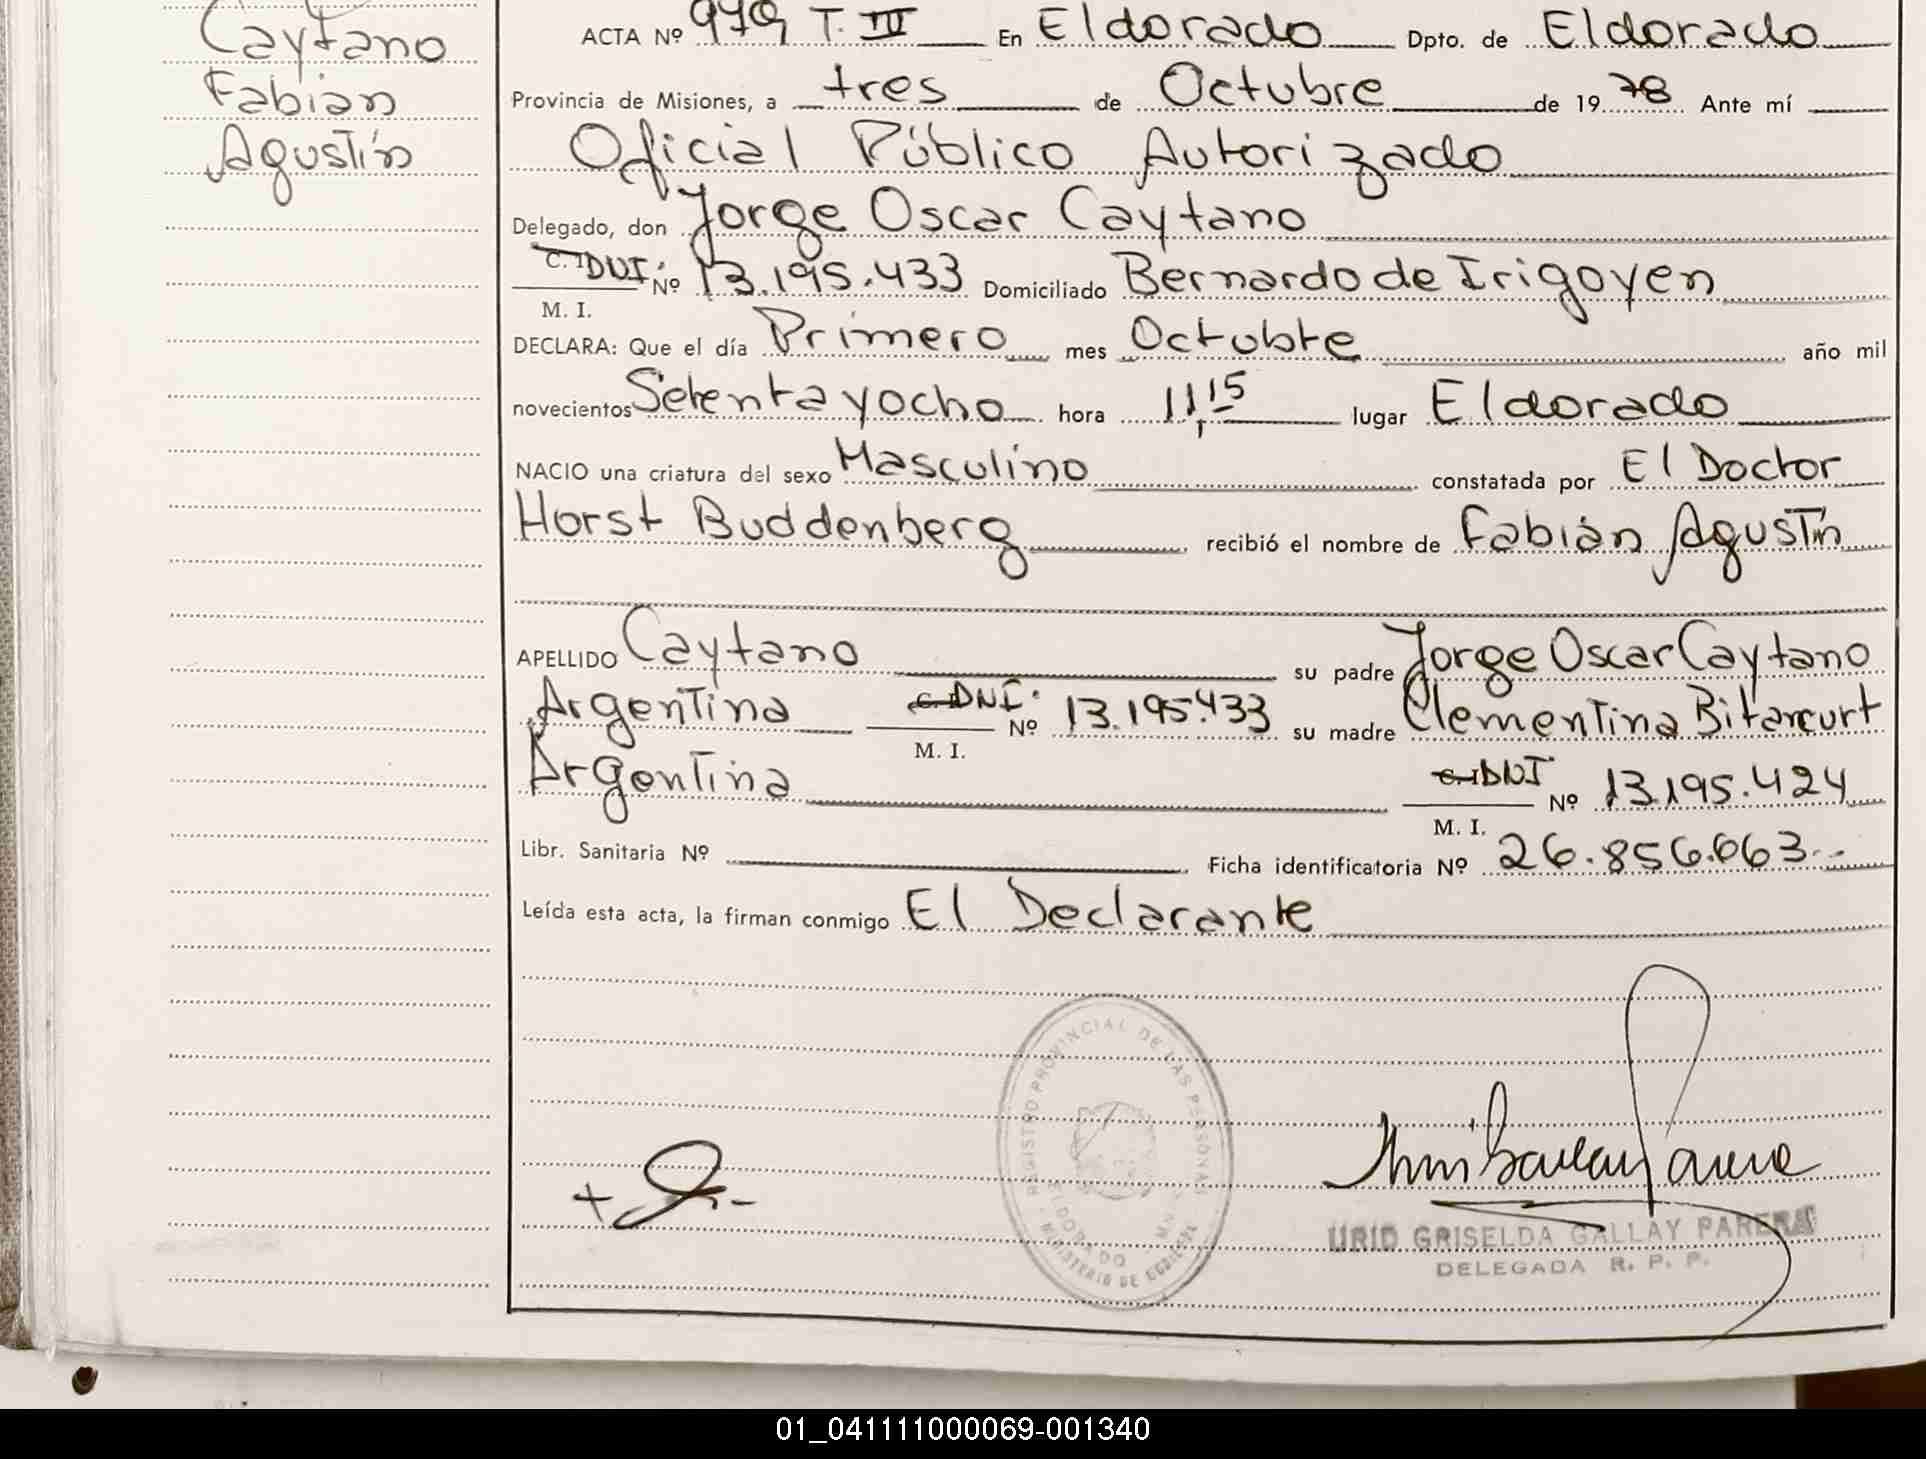 Caytano
Fabián
Agustín
ACTA Nº 979 T. III En Eldorado Dpto. de Eldorado
Provincia de Misiones, a tres de Octubre de 1978 Ante mí
Oficial Público Autorizado
Delegado, don Jorge Oscar Caytano
C. I. DNI. Nº 13.195.433 Domiciliado Bernardo de Irigoyen
M. I.
DECLARA: Que el día Primero mes Octubre año mil
novecientos Setenta y ocho hora 11,15 lugar Eldorado
NACIO una criatura del sexo Masculino constatada por El Doctor
Horst Buddenberg recibió el nombre de Fabián Agustín
APELLIDO Caytano su padre Jorge Oscar Caytano
Argentina DNI. Nº 13.195.433 su madre Clementina Bitencurt
M. I.
Argentina DNI Nº 13.195.424
M. I.
Libr. Sanitaria Nº Ficha identificatoria Nº 26.856.063.-
Leída esta acta, la firman conmigo El Declarante
REGISTRO PROVINCIAL DE LAS PERSONAS
ELDORADO
MINISTERIO DE GOBIERNO
GRISELDA GALLAY PARERA
DELEGADA R. P. P.
01_041111000069-001340